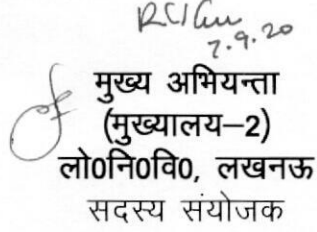 7.9.20
मुख्य अभियन्ता
(मुख्यालय–2)
लो0नि0वि0, लखनऊ
सदस्य संयोजक